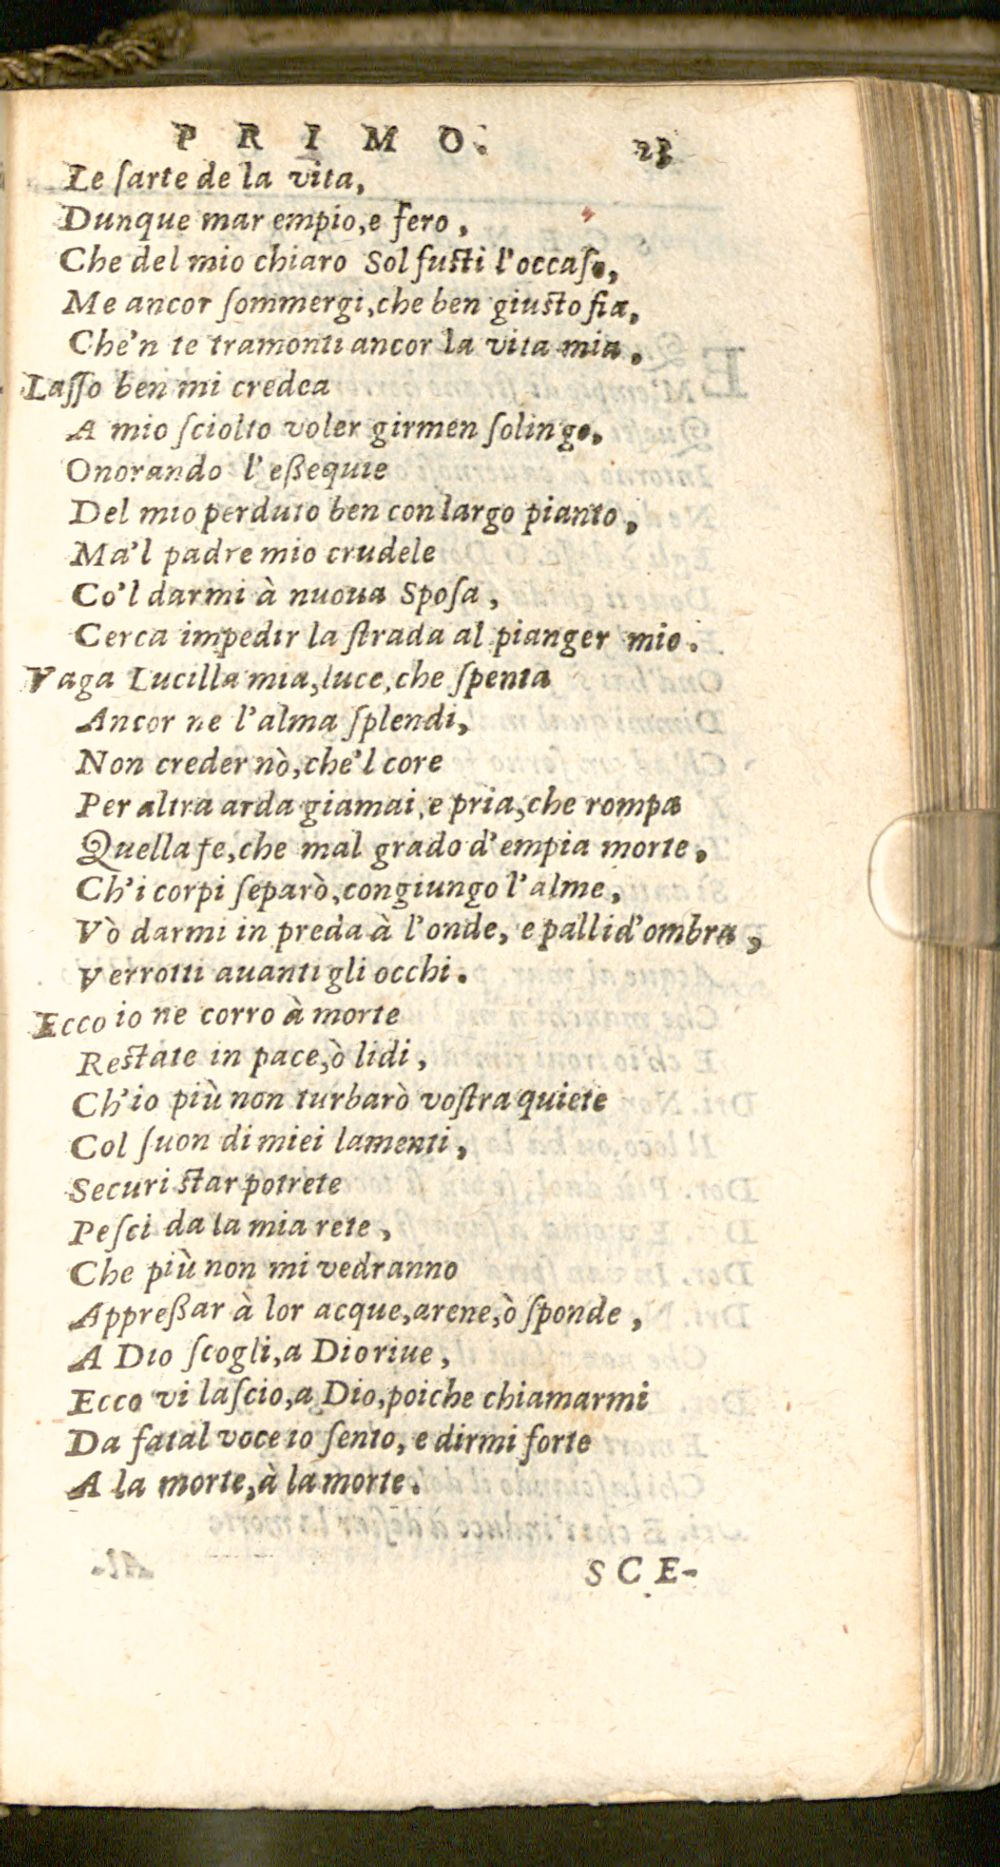 PRIMO. 23
Le ſarte de la vita,
Dunque mar empio, e fero,
Che del mio chiaro Sol fuſti l'occaſo,
Me ancor ſommergi, che ben giuſto fia,
Che'n te tramonti ancor la vita mia.
Laſſo ben mi credea
A mio ſciolto voler girmen ſolingo,
Onorando l'eßequie
Del mio perduto ben con largo pianto,
Ma'l padre mio crudele
Co'l darmi à nuoua Spoſa,
Cerca impedir la ſtrada al pianger mio.
Vaga Lucilla mia, luce, che ſpenta
Ancor ne l'alma ſplendi,
Non creder nò, che'l core
Per altra arda giamai, e pria, che rompa
Quella fe, che mal grado d'empia morte,
Ch'i corpi ſeparò, congiungo l'alme,
Vò darmi in preda à l'onde, e pallid'ombra,
Verrotti auanti gli occhi.
Ecco io ne corro à morte
Reſtate in pace, ò lidi,
Ch'io più non turbarò voſtra quiete
Col ſuon di miei lamenti,
Securi ſtar potrete
Peſci da la mia rete,
Che più non mi vedranno
Appreßar à lor acque, arene, ò ſponde,
A Dio ſcogli, a Dio riue,
Ecco vi laſcio, a Dio, poiche chiamarmi
Da fatal voce io ſento, e dirmi forte
A la morte, à la morte.
SCE-